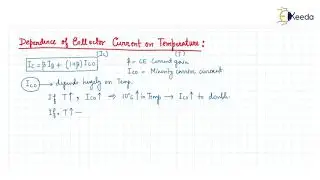 Keeda
Dependence of Collector Current on Temperature :
(IC) (T)
IC = β IB + (1+β) ICO
β = CE Current gain
ICO = Minority carrier current
ICO → depends largely on Temp.
If T↑, ICO↑ ⇒ 10°C↑ in Temp → ICO↑ to double
If, T↑ —